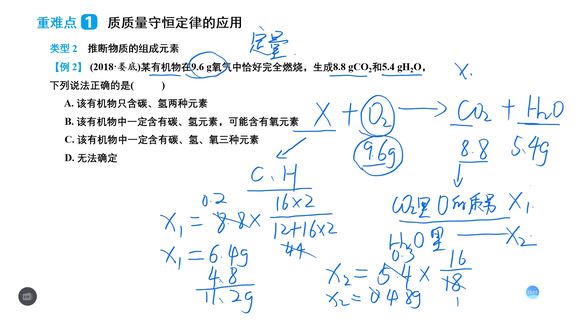 重难点 1 质质量守恒定律的应用
类型 2 推断物质的组成元素
定量
【例 2】 (2018·娄底)某有机物在9.6 g氧气中恰好完全燃烧，生成8.8 gCO₂和5.4 gH₂O，
下列说法正确的是( )
X.
A. 该有机物只含碳、氢两种元素
B. 该有机物中一定含有碳、氢元素，可能含有氧元素
C. 该有机物中一定含有碳、氢、氧三种元素
D. 无法确定
X + O₂ → CO₂ + H₂O
9.6g 8.8 5.4g
C、H
CO₂里O的质量 X₁
H₂O里 —— X₂
0.2
X₁ = 8.8 × 16×2
12+16×2
44
X₁ = 6.4g
4.8
11.2g
0.3
X₂ = 5.4 × 16
18
1
X₂ = 0.48g